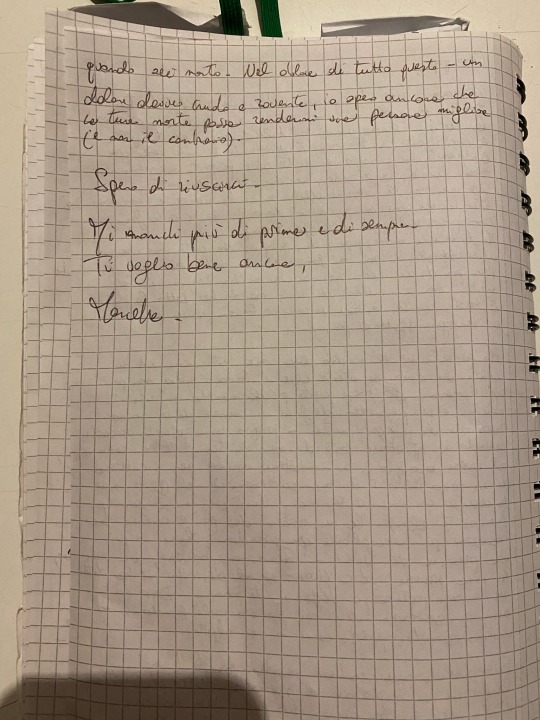 quando sei morto. Nel dolore di tutto questo - un
dolore davvero crudo e rovente, io spero ancora che
la tua morte possa rendermi una persona migliore
(e non il contrario).
Spero di riuscirci.
Mi manchi più di prima e di sempre.
Ti voglio bene ancora,